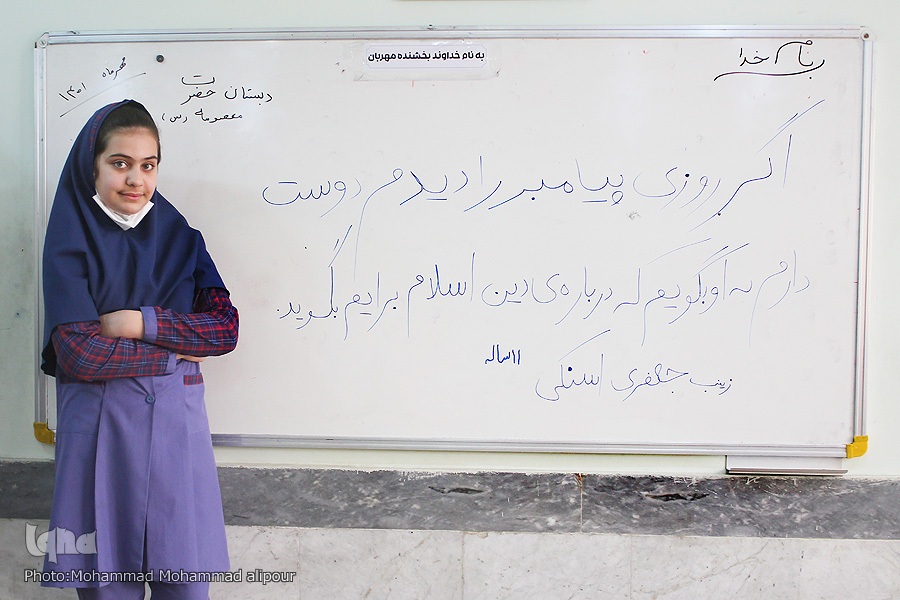 به نام خداوند بخشنده مهربان
بنام خدا
مهرماه ۱۴۰۱
دبستان حضرت
معصومه (س)
اگر روزی پیامبر را دیدم دوست
دارم به او بگویم که درباره‌ی دین اسلام برایم بگوید.
زینب جعفری اسنکی ۱۱ ساله
iqna
Photo:Mohammad Mohammad alipour